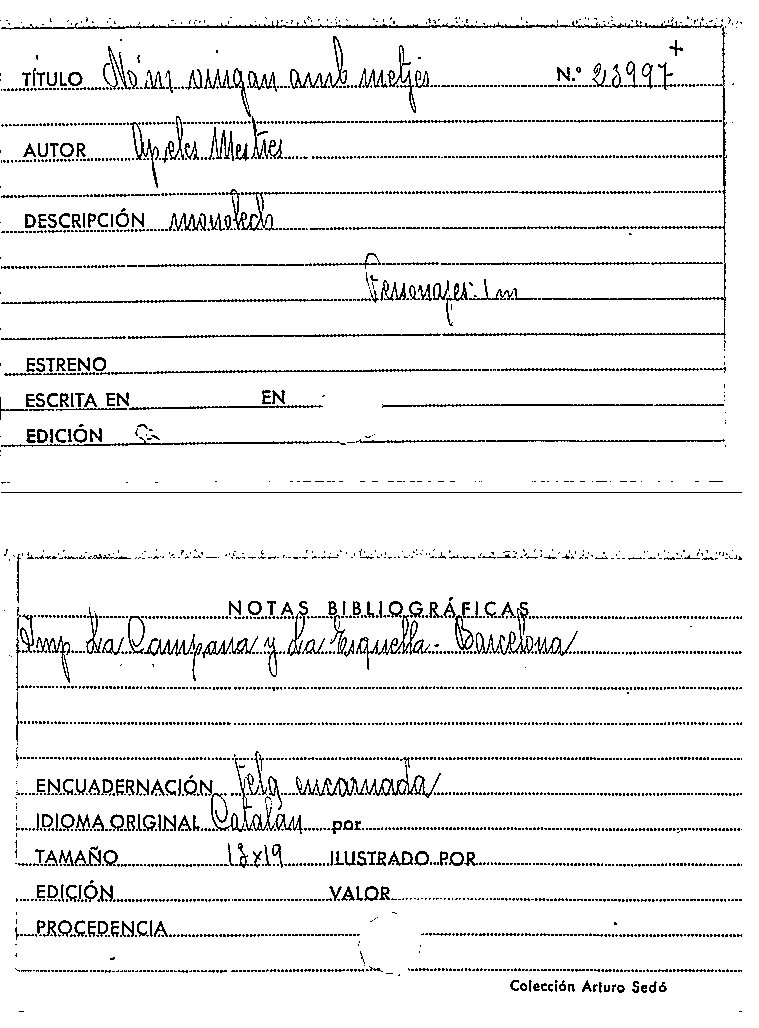 TÍTULO No'm vingan amb metjes N.º 23997 +
AUTOR Apeles Mestres
DESCRIPCIÓN monolech
Personajes: 1 m
ESTRENO
ESCRITA EN EN
EDICIÓN
NOTAS BIBLIOGRÁFICAS
Imp La Campana y La Esquella - Barcelona
ENCUADERNACIÓN Tela encarnada
IDIOMA ORIGINAL Catalán por
TAMAÑO 13x19 ILUSTRADO POR
EDICIÓN VALOR
PROCEDENCIA
Colección Arturo Sedó